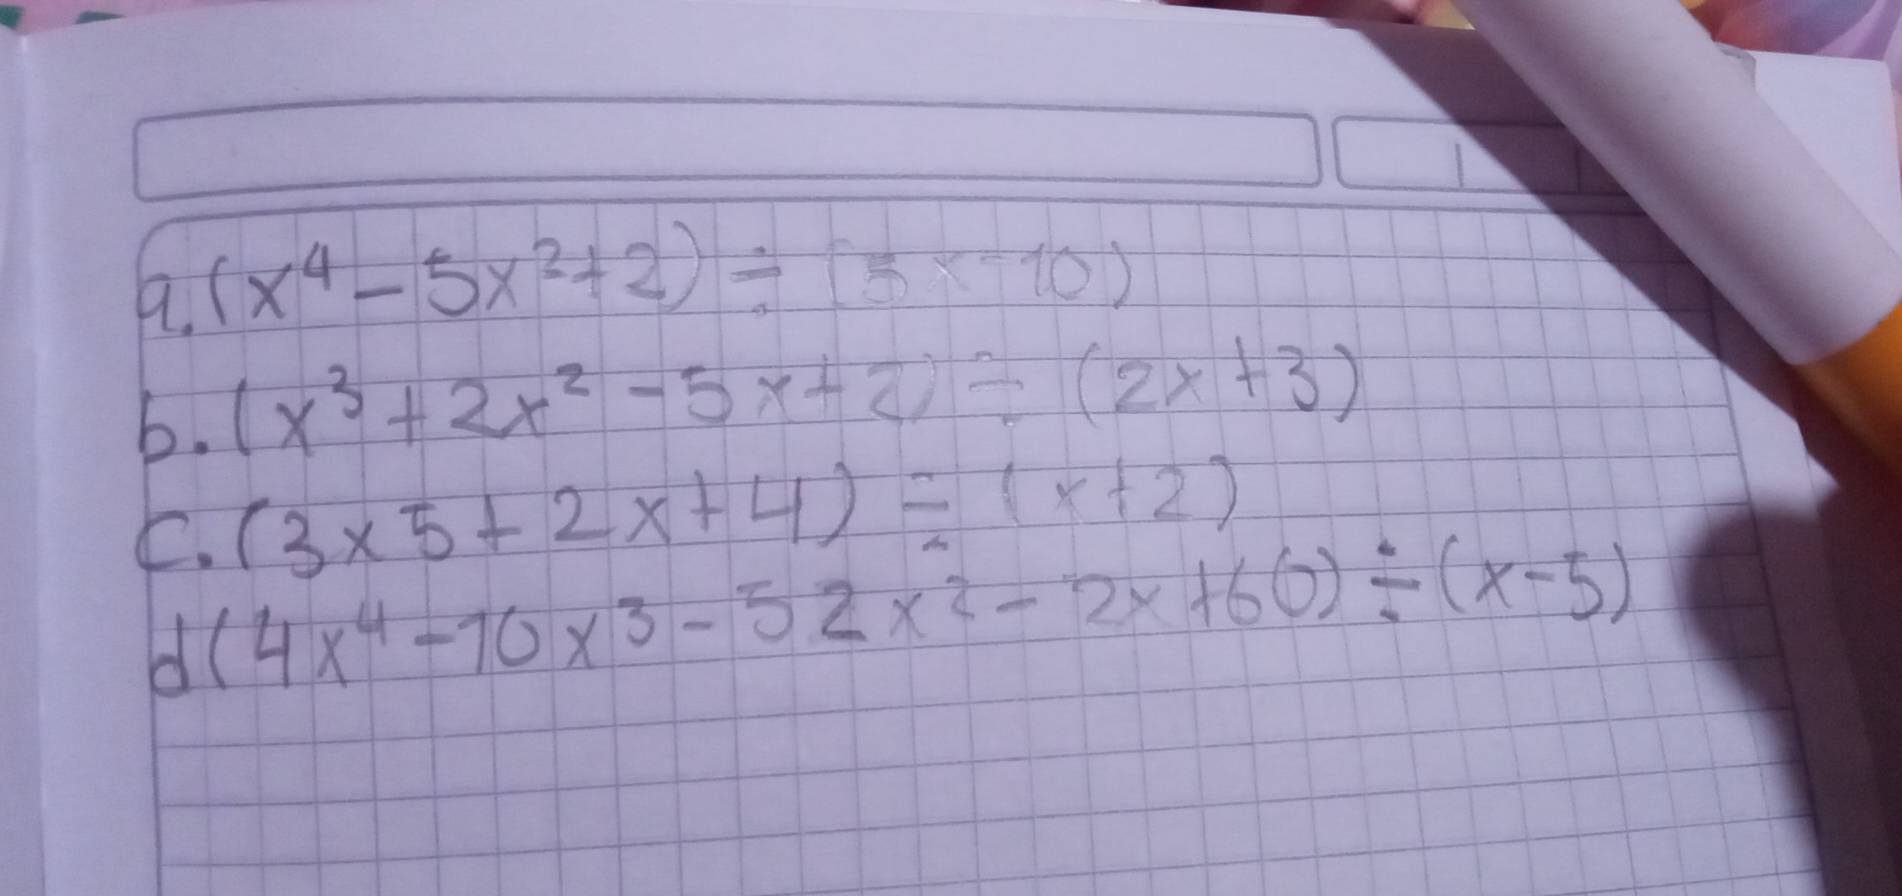 a. (x⁴ - 5x² + 2) ÷ (5x - 10)
b. (x³ + 2x² - 5x + 2) ÷ (2x + 3)
c. (3x5 + 2x + 4) ÷ (x + 2)
d (4x⁴ - 10x³ - 52x² - 2x + 60) ÷ (x - 5)